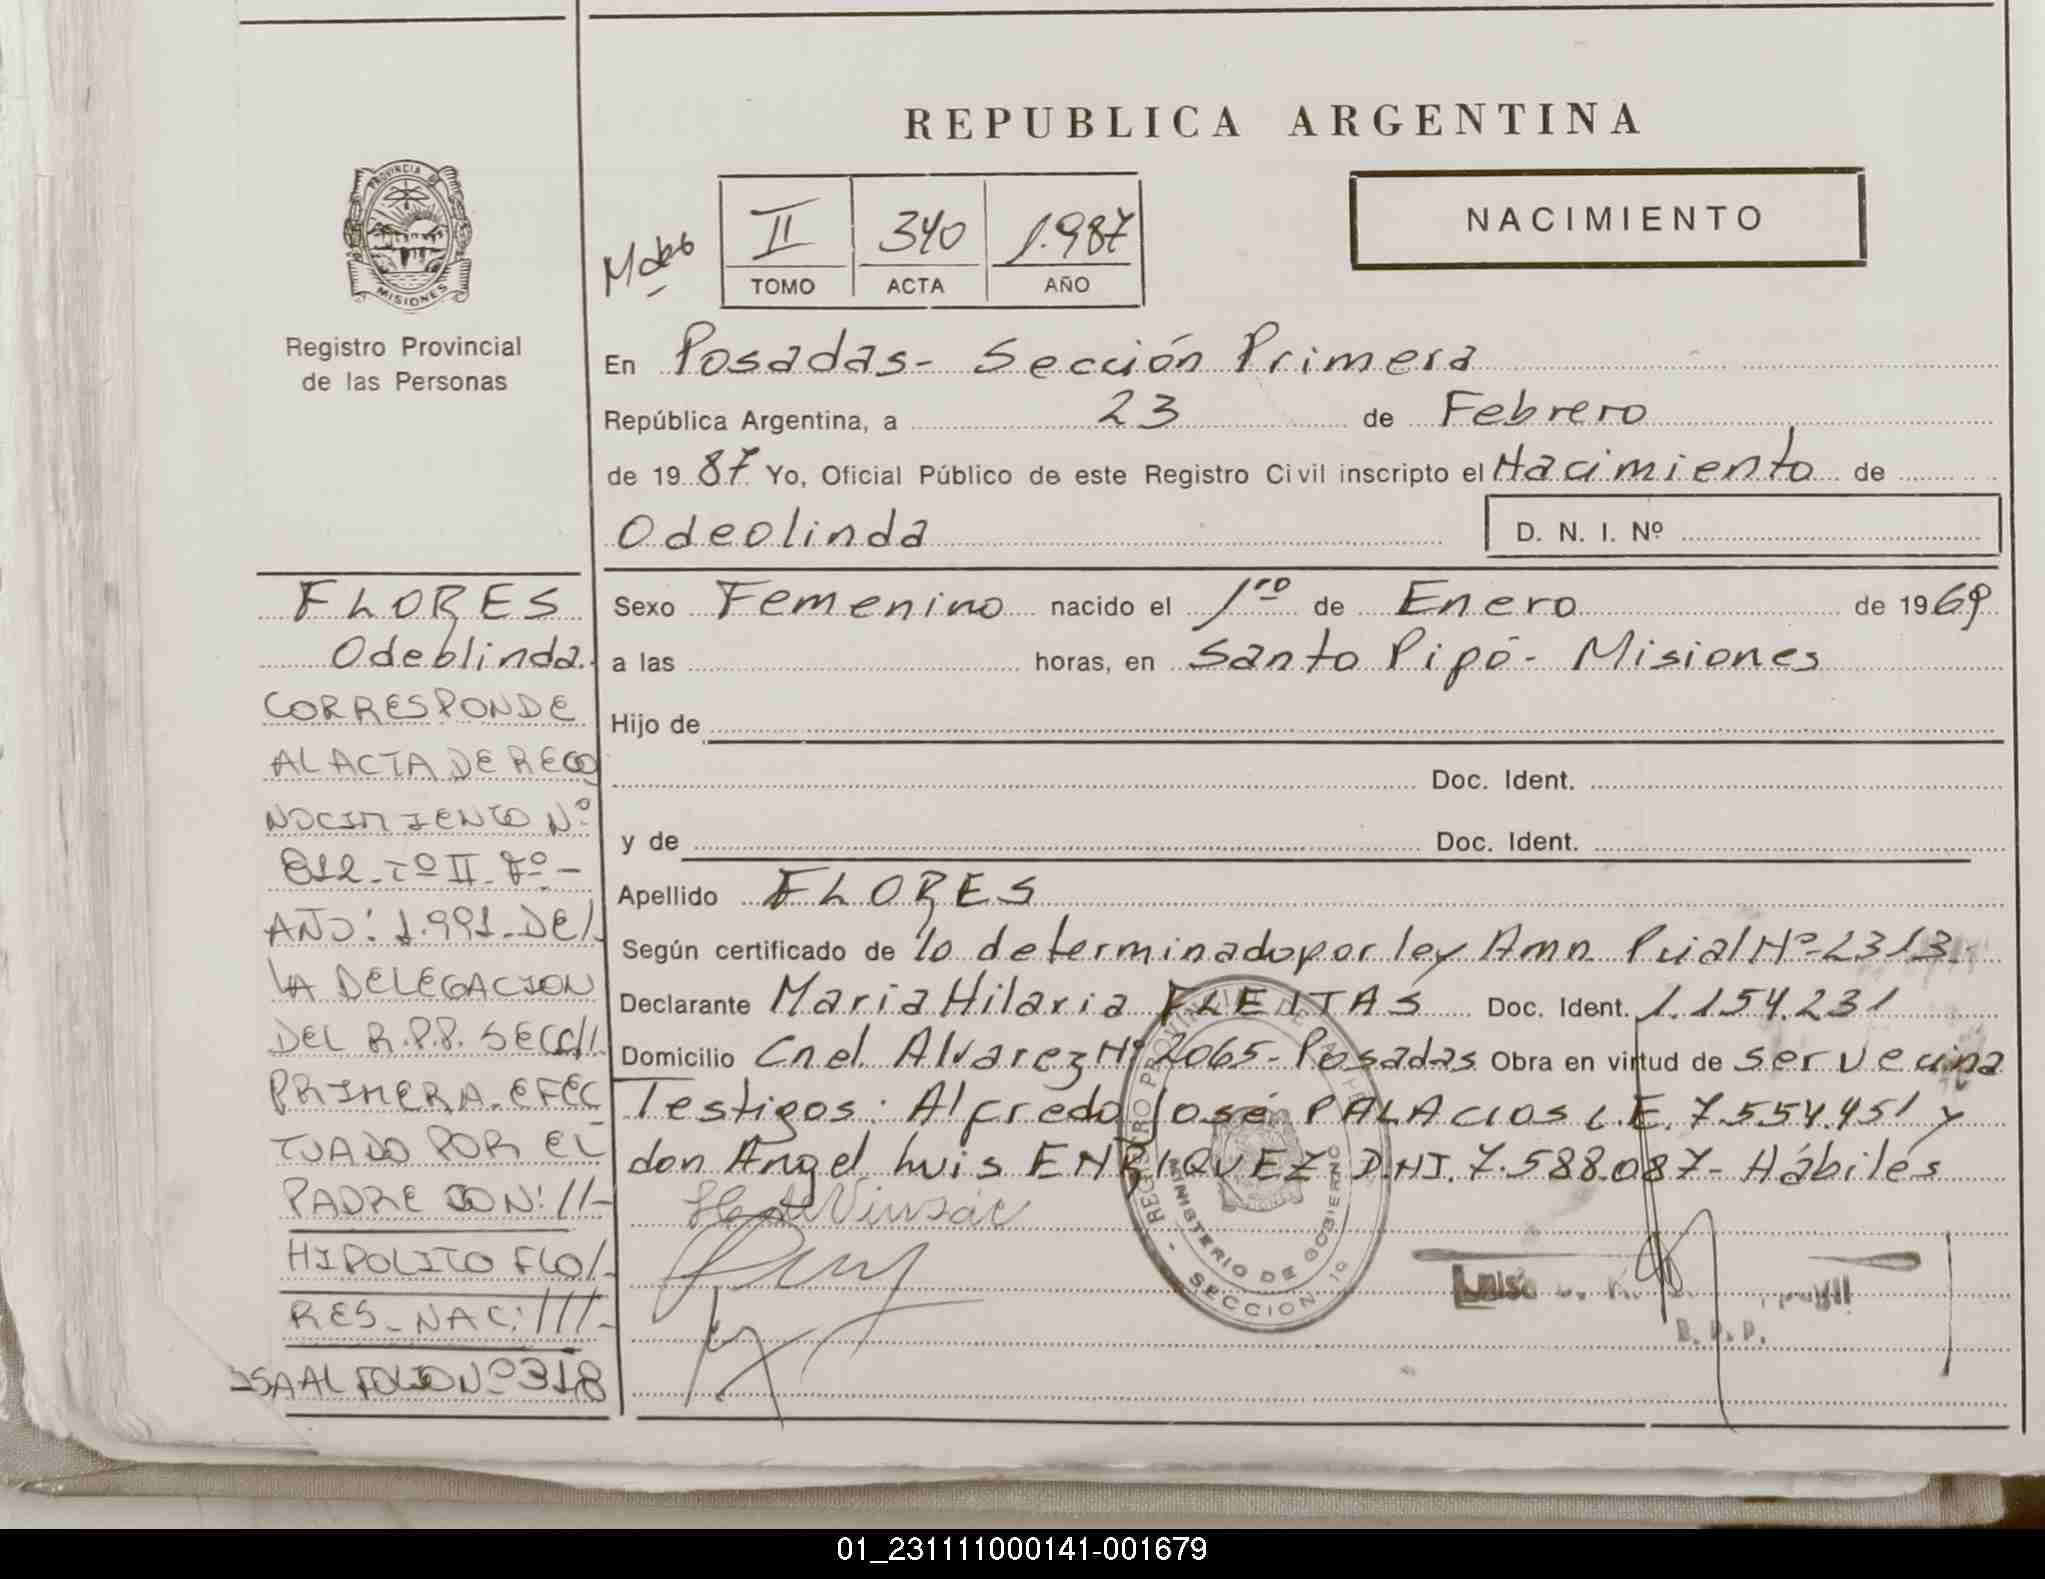 REPUBLICA ARGENTINA
NACIMIENTO
II 340 1.987
TOMO ACTA AÑO
PROVINCIA DE
MISIONES
Registro Provincial
de las Personas
En Posadas- Sección Primera
República Argentina, a 23 de Febrero
de 1987 Yo, Oficial Público de este Registro Civil inscripto el Nacimiento de
Odeolinda D. N. I. Nº
Sexo Femenino nacido el 1ro de Enero de 1969
a las horas, en Santo Pipó- Misiones
Hijo de
Doc. Ident.
y de Doc. Ident.
Apellido FLORES
Según certificado de lo determinado por ley Amn. Pcial Nº 2313-
Declarante Maria Hilaria FLEITAS Doc. Ident. 1.154.231
Domicilio Cnel. Alvarez Nº 2065- Posadas Obra en virtud de ser vecina
Testigos: Alfredo José PALACIOS L.E. 7.554.451 y
don Angel Luis ENRIQUEZ D.NI. 7.588.087- Hábiles
REGISTRO PROVINCIAL DE LAS PERSONAS
MINISTERIO DE GOBIERNO
SECCION 1º
R. P. P.
FLORES
Odeolinda.
CORRESPONDE
AL ACTA DE RECO
NOCIMIENTO Nº
812-Tº II-Fº-
AÑO: 1.991-DE/-
LA DELEGACION
DEL R.P.P. SECC//.
PRIMERA-EFEC
TUADO POR EL
PADRE DON: //-
HIPOLITO FLO/-
RES-NAC: ///-
ISA AL FOLIO Nº 318
01_231111000141-001679